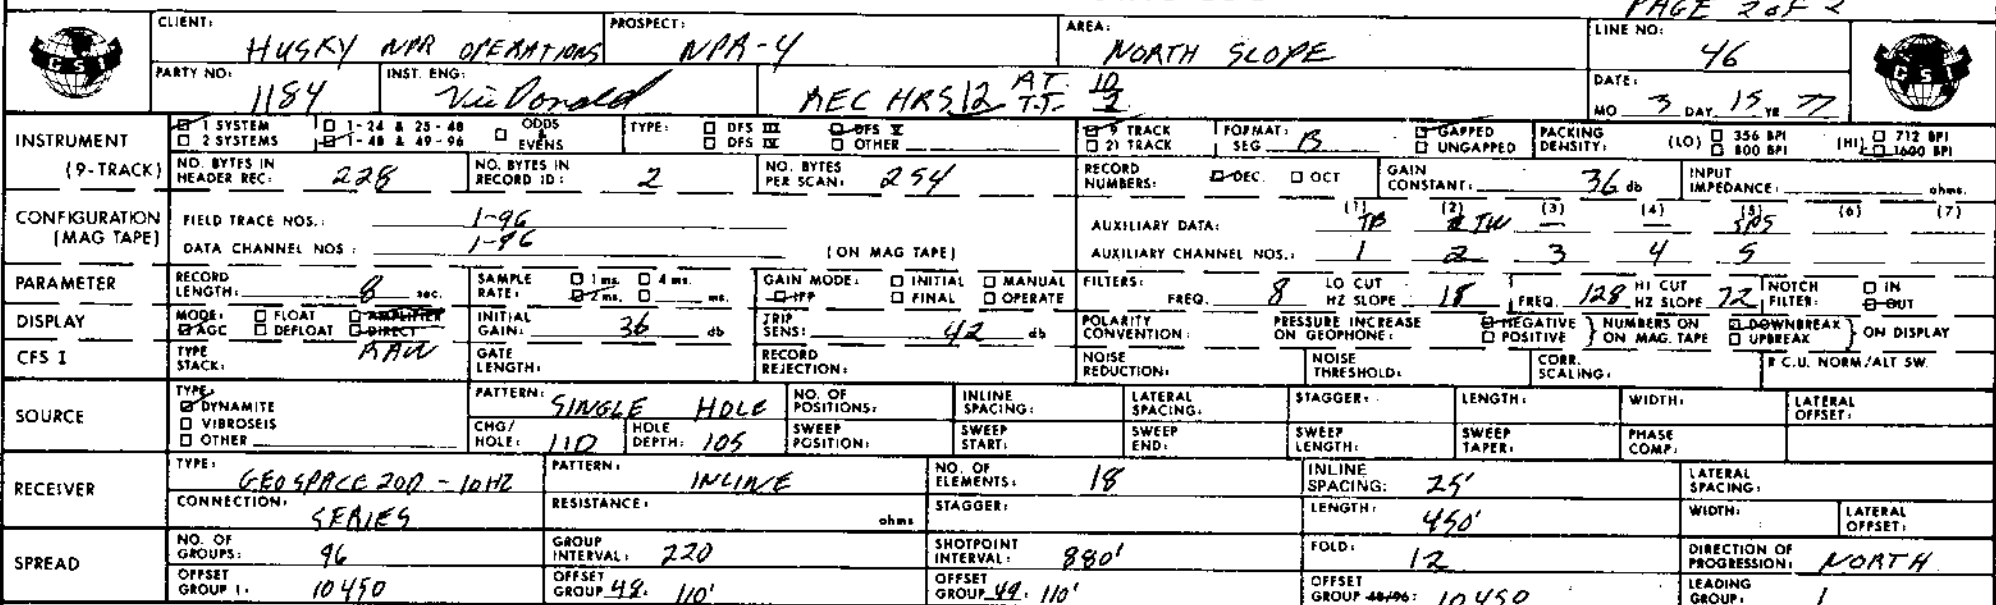 PAGE 2 OF 2
CLIENT: HUSKY NPR OPERATIONS PROSPECT: NPR-4 AREA: NORTH SLOPE LINE NO: 46
GSI
PARTY NO: 1184 INST. ENG: Vic Donald REC HRS 12 AT. 10 T.T. 2 DATE: MO 3 DAY 15 YR 77
GSI
INSTRUMENT (9-TRACK)
1 SYSTEM 1-24 & 25-48 ODDS & EVENS TYPE: DFS III DFS V 9 TRACK FORMAT: SEG B GAPPED PACKING DENSITY: (LO) 356 BPI (HI) 712 BPI
2 SYSTEMS 1-48 & 49-96 DFS IV OTHER 21 TRACK UNGAPPED 800 BPI 1600 BPI
NO. BYTES IN HEADER REC: 228 NO. BYTES IN RECORD ID: 2 NO. BYTES PER SCAN: 254 RECORD NUMBERS: DEC. OCT GAIN CONSTANT: 36 db INPUT IMPEDANCE: ohms.
CONFIGURATION (MAG TAPE)
FIELD TRACE NOS.: 1-96 AUXILIARY DATA: (1) TB (2) TW (3) — (4) — (5) SPS (6) (7)
DATA CHANNEL NOS: 1-96 (ON MAG TAPE) AUXILIARY CHANNEL NOS.: 1 2 3 4 5
PARAMETER RECORD LENGTH: 8 sec. SAMPLE RATE: 1 ms. 4 ms. 2 ms. ms. GAIN MODE: INITIAL MANUAL IFP FINAL OPERATE FILTERS: FREQ. 8 LO CUT HZ SLOPE 18 FREQ. 128 HI CUT HZ SLOPE 72 NOTCH FILTER: IN OUT
DISPLAY MODE: FLOAT AMPLIFIER AGC DEFLOAT DIRECT INITIAL GAIN: 36 db TRIP SENS: 42 db POLARITY CONVENTION: PRESSURE INCREASE ON GEOPHONE: NEGATIVE POSITIVE NUMBERS ON MAG. TAPE DOWNBREAK UPBREAK ON DISPLAY
CFS I TYPE STACK: RAW GATE LENGTH: RECORD REJECTION: NOISE REDUCTION: NOISE THRESHOLD: CORR. SCALING: R.C.U. NORM/ALT SW.
SOURCE TYPE: DYNAMITE VIBROSEIS OTHER
PATTERN: SINGLE HOLE NO. OF POSITIONS: INLINE SPACING: LATERAL SPACING: STAGGER: LENGTH: WIDTH: LATERAL OFFSET:
CHG/HOLE: 110 HOLE DEPTH: 105 SWEEP POSITION: SWEEP START: SWEEP END: SWEEP LENGTH: SWEEP TAPER: PHASE COMP:
RECEIVER TYPE: GEOSPACE 20D - 10HZ PATTERN: INLINE NO. OF ELEMENTS: 18 INLINE SPACING: 25' LATERAL SPACING:
CONNECTION: SERIES RESISTANCE: ohms STAGGER: LENGTH: 450' WIDTH: LATERAL OFFSET:
SPREAD NO. OF GROUPS: 96 GROUP INTERVAL: 220 SHOTPOINT INTERVAL: 880' FOLD: 12 DIRECTION OF PROGRESSION: NORTH
OFFSET GROUP 1: 10450 OFFSET GROUP 48: 110' OFFSET GROUP 49: 110' OFFSET GROUP 48/96: 10450 LEADING GROUP: 1